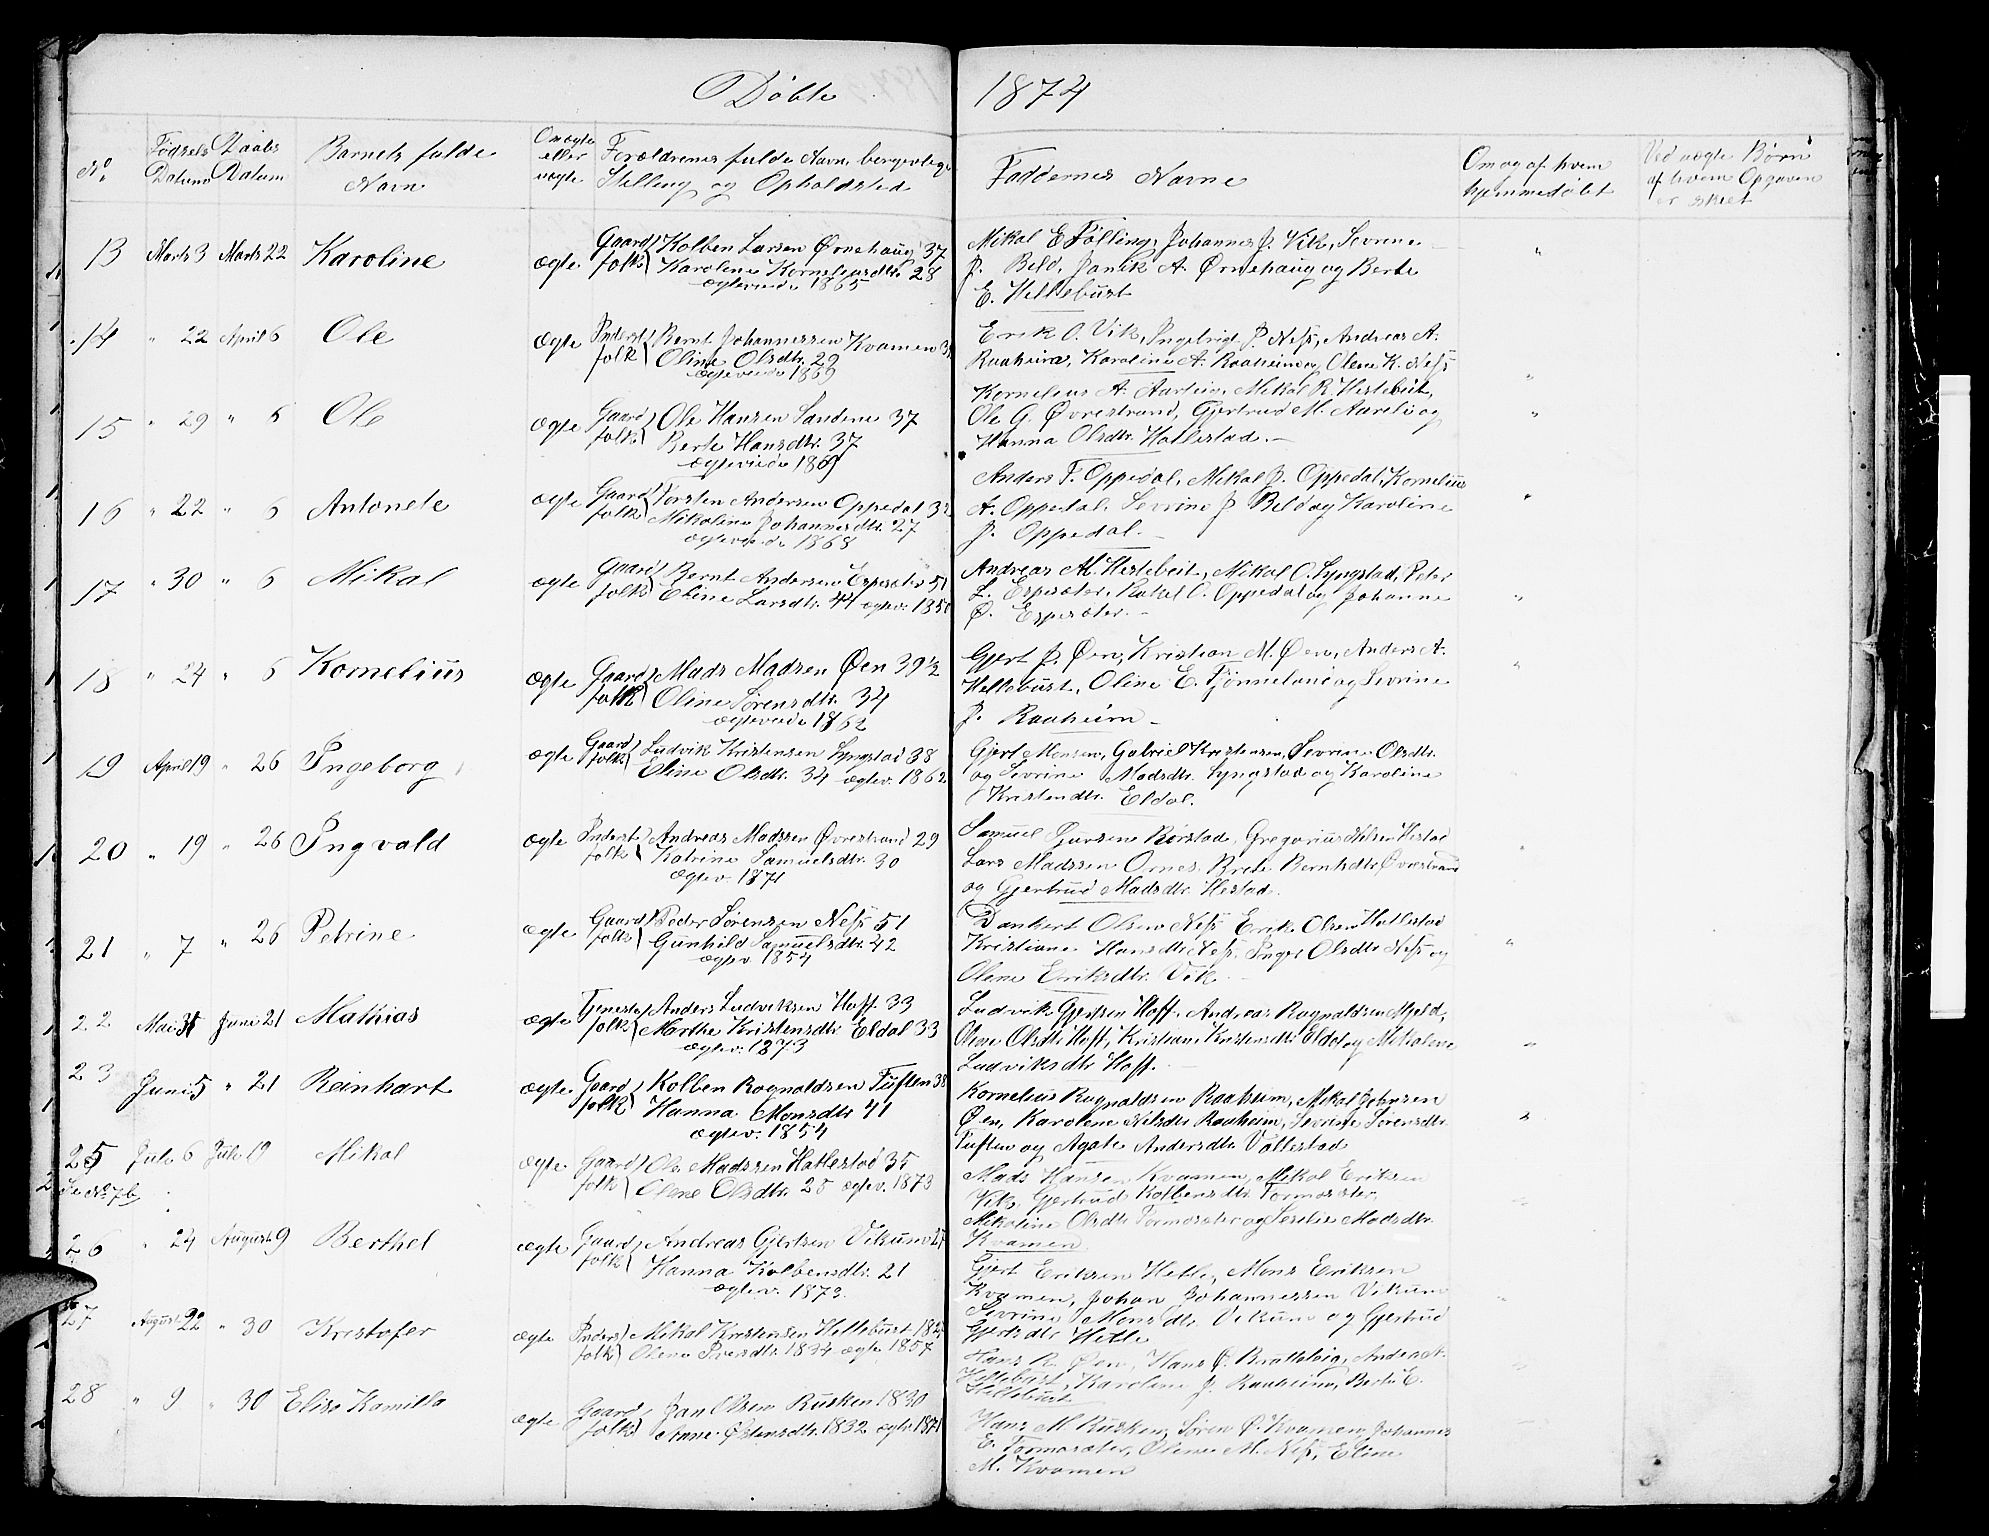 Døbte 1874
No. Fødsels Datum Daabs Datum Barnets fulde Navn Om ægte eller uægte Forældrenes fulde Navn, borgerlige Stilling og Opholdsted Faddernes Navne Om og af hvem hjemmedøbt Ved uægte Børn af hvem Opgaven er skeet
13 Marts 3 Marts 22 Karoline ægte Gaardfolk Kolben Larsen Ørnehaug 37
Karolene Korneliusdtr. 28
ægteviede 1865
Mikal E Følling, Johannes J. Vik, Severine
J. Beld, Janik A. Ørnehaug og Berte
E. Hellebust
14 " 22 April 6 Ole ægte Inderstfolk Bernt Johannessen Kvamen
Oline Olsdtr. 29
ægteviede 1869
Erik O. Vik, Ingebrigt J. Ness, Andreas A.
Raaheim, Karoline A. Raaheim og Olene K. Ness
15 " 29 " 6 Ole ægte Gaardfolk Ole Hansen Sandene 37
Berte Hansdtr. 37
ægteviede 1869
Kornelius A. Aarlie, Mikal R. Hestebeit,
Ole G. Øvrestrand, Gjertrud M. Aarlie og
Hanna Olsdtr. Hatlestad. -
16 " 22 " 6 Antonete ægte Gaardfolk Torsten Andersen Oppedal
Mikoline Johannesdtr. 27
ægteviede 1868
Anders T. Oppedal, Mikal J. Oppedal, Kornelius
A. Oppedal, Sevrine J Beld og Karoline
J. Oppedal. -
17 " 30 " 6 Mikal ægte Gaardfolk Bernt Andersen Espesæter 51
Eline Larsdtr. 44 ægtev. 1850
Andreas M. Hestebeit, Mikal O. Lyngstad, Peter
L. Espesæter, Rakel O. Oppedal og Johanne
Ø. Espesæter. -
18 " 24 " 6 Kornelius ægte Gaardfolk Mads Madsen Øen 39½
Oline Sørensdtr. 34
ægteviede 1862
Gjert J. Øen, Kristian M. Øen, Anders A.
Hellebust, Oline E. Tjønneland og Sevrine
J. Raaheim -
19 April 19 " 26 Ingeborg ægte Gaardfolk Ludvik Kristensen Lyngstad 38
Eline Olsdtr. 34 ægtev. 1862
Gjert Monsen, Gabriel Kristensen, Sevrine Olsdtr.
og Sevrine Madsdtr. Lyngstad og Karoline
Kristendtr. Eldal.
20 " 19 " 26 Ingvald ægte Inderstfolk Andreas Madssen Øvrestrand 29
Katrine Samuelsdtr. 30
ægtev. 1871
Samuel Rørstad, Gregorius Nilsen Hestad
Lars Madssen Ornes, Brete Berntsdtr. Øvrestrand
og Gjertrud Madsdtr. Hestad.
21 " 7 " 26 Petrine ægte Gaardfolk Peder Sørensen Ness 51
Gunhild Samuelsdtr. 42
ægtev. 1854
Dankert Olsen Ness Erik Olsen Hatlestad
Kristiane Hansdtr. Ness, Inger Olsdtr. Ness og
Olene Eriksdtr. Vik
22 Mai 31 Juni 21 Mathias ægte Tjenestefolk Anders Ludviksen Hoff. 33
Marthe Kristensdtr. Eldal 33
ægtev. 1873
Ludvik Gjertsen Hoff, Andreas Ragnaldsen Mjeld,
Oline Olsdtr Hoff, Kristiane Kristensdtr. Eldal og Mikaline
Ludviksdtr. Hoff. -
23 Juni 5 " 21 Reinhart ægte Gaardfolk Kolben Ragnaldsen Tuften 38
Hanna Monsdtr 41
ægtev. 1854
Kornelius Ragnaldsen Raaheim, Mikal Johnsen
Øen, Karolene Nilsdtr. Raaheim, Sevrine Sørensdtr.
Tuften og Agate Andersdtr. Vallestad
25 Juli 6 Juli 19 Mikal ægte Gaardfolk Ole Madssen Hatlestad 35
Oline Olsdtr. 25 ægtev. 1873
Se No 7b
Mads Hansen Kvamen, Mikal Eriksen
Vik, Gjertrud Kolbensdtr. Tormoseter,
Mikoline Olsdtr. Tormoseter og Madsdtr.
Kvamen
26 " 24 August 9 Berthel ægte Gaardfolk Andreas Gjertsen Vikum 27
Hanna Kolbensdtr. 21
ægtev. 1873.
Gjert Eriksen Hetle, Mons Eriksen
Kvamen, Johan Johannessen Vikum
Sevrine Monsdtr Vikum og Gjertrud
Gjertsdtr. Hetle
27 August 22 " 30 Kristofer ægte Inderstfolk Mikal Kristensen Hellebust
Olene 1834 ægte 1857
Hans R. Øen, Hans Andreas A.
Hellebust, Karoline J. Raaheim, Berte E.
Hellebust
28 " 9 " 30 Elise Kamilla ægte Gaardfolk Jan Olsen Rusken 1830
Anne Østensdtr. 1832 ægtv. 1871
Hans M Rusken, Søren Ø. Kvamen, Johannes
E. Tormoseter, Olene M. Ness, Eline
M. Kvamen